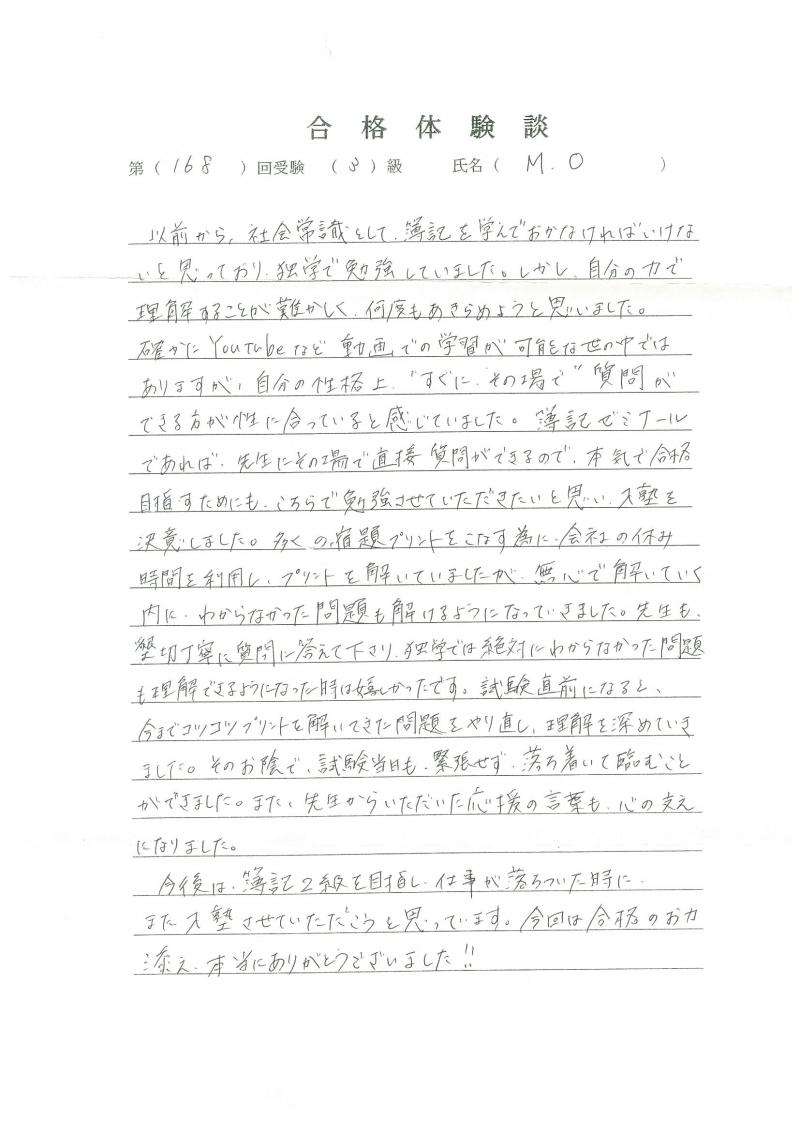 合格体験談
第（168）回受験（3）級 氏名（M.O）
以前から、社会常識として、簿記を学んでおかなければいけな
いと思っており、独学で勉強していました。しかし、自分の力で
理解することが難かしく、何度もあきらめようと思いました。
確かにYouTubeなど動画での学習が可能な世の中では
ありますが、自分の性格上、"すぐに、その場で"質問が
できる方が性に合っていると感じていました。簿記ゼミナール
であれば、先生にその場で直接質問ができるので、本気で合格
目指すためにも、こちらで勉強させていただきたいと思い、入塾を
決意しました。多くの宿題プリントをこなす為に、会社の休み
時間を利用し、プリントを解いていましたが、無心で解いていく
内に、わからなかった問題も解けるようになっていきました。先生も、
懇切丁寧に質問に答えて下さり、独学では絶対にわからなかった問題
も理解できるようになった時は嬉しかったです。試験直前になると、
今までコツコツプリントを解いてきた問題をやり直し、理解を深めていき
ました。そのお陰で、試験当日も、緊張せず、落ち着いて臨むこと
ができました。また、先生からいただいた応援の言葉も、心の支え
になりました。
今後は、簿記2級を目指し、仕事が落ちついた時に、
また入塾させていただこうと思っています。今回は合格のお力
添え、本当にありがとうございました!!